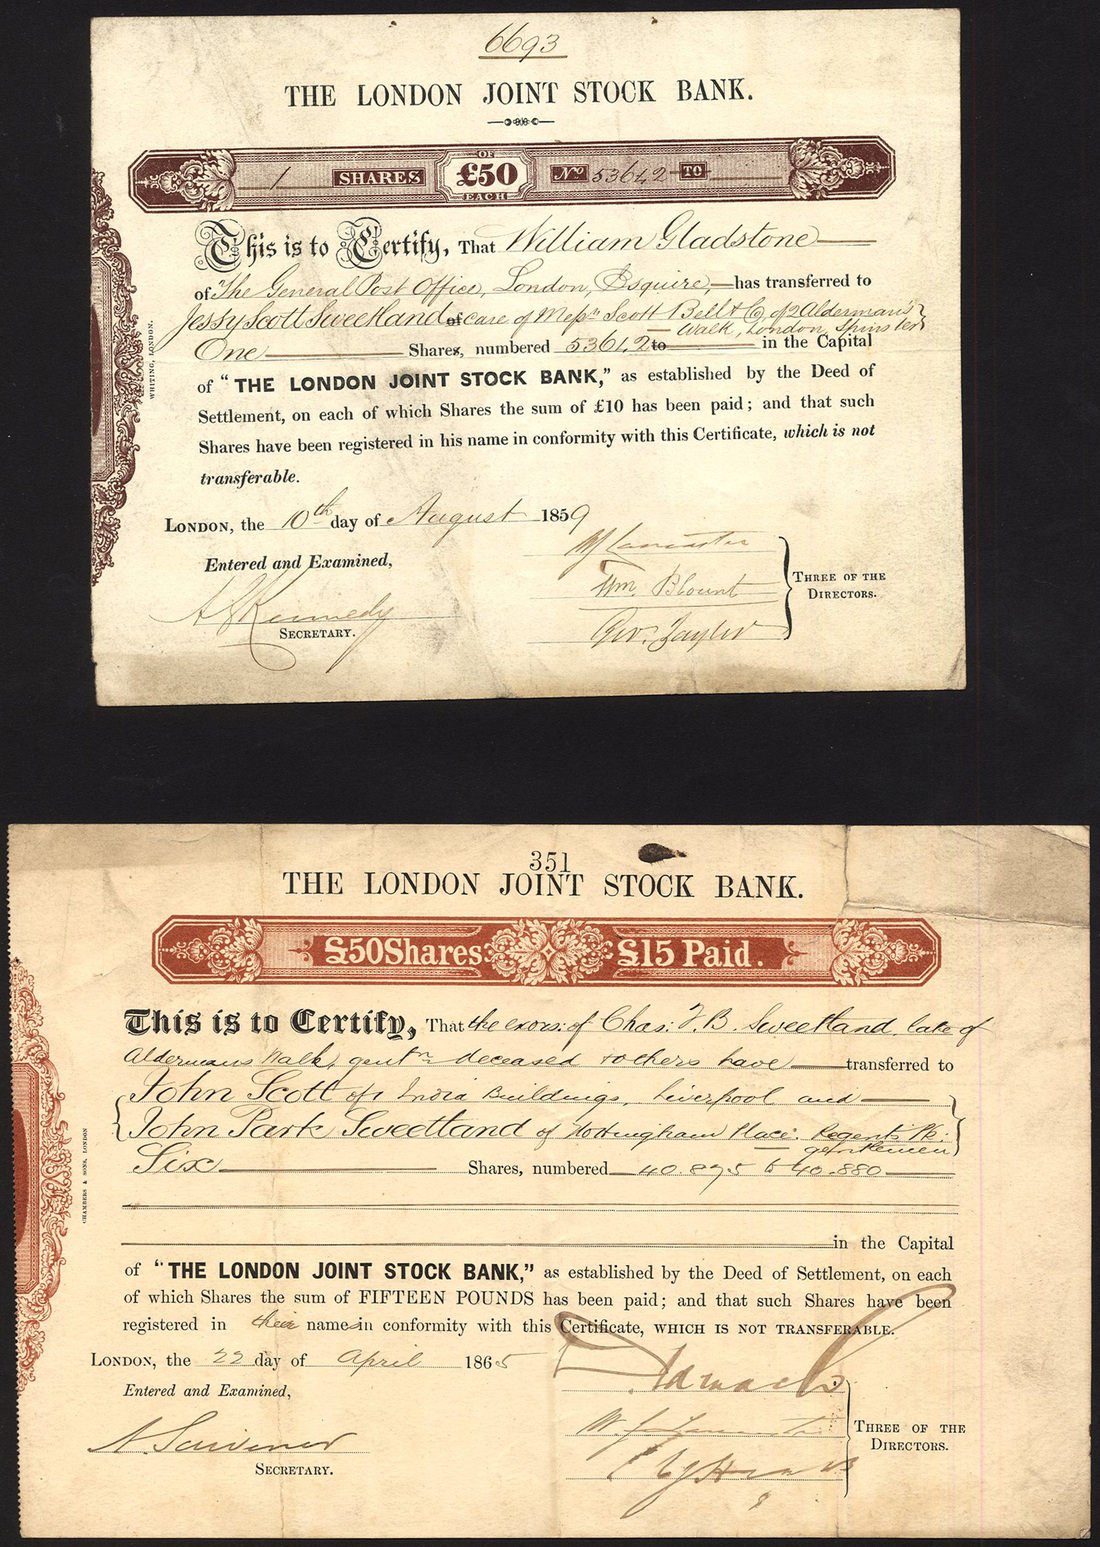 6693
THE LONDON JOINT STOCK BANK.
1 SHARES OF £50 EACH No 53642 TO
This is to Certify, That William Gladstone
of The General Post Office, London, Esquire, has transferred to
Jessy Scott Sweetland of care of Messrs Scott Bell & Co of 2 Alderman's
Walk, London, Spinster
One Shares, numbered 53642 to in the Capital
of "THE LONDON JOINT STOCK BANK," as established by the Deed of
Settlement, on each of which Shares the sum of £10 has been paid; and that such
Shares have been registered in his name in conformity with this Certificate, which is not
transferable.
LONDON, the 10th day of August 1859
Entered and Examined,
WJ Lancaster
Wm. Blount
Geo. Tayler
THREE OF THE
DIRECTORS.
Kennedy
SECRETARY.
WHITING, LONDON.
351
THE LONDON JOINT STOCK BANK.
£50 Shares £15 Paid.
This is to Certify, That the exors: of Chas: F. B. Sweetland, late of
Aldermans Walk, gentn deceased & others have transferred to
John Scott of 1 India Buildings, Liverpool and
John Park Sweetland of Nottingham Place: Regents Pk:
gentlemen
Six Shares, numbered 40.875 to 40.880
in the Capital
of "THE LONDON JOINT STOCK BANK," as established by the Deed of Settlement, on each
of which Shares the sum of FIFTEEN POUNDS has been paid; and that such Shares have been
registered in their names in conformity with this Certificate, WHICH IS NOT TRANSFERABLE.
LONDON, the 22 day of April 1865
Entered and Examined,
A. Scrivenor
SECRETARY.
THREE OF THE
DIRECTORS.
CHAMBERS & SONS, LONDON